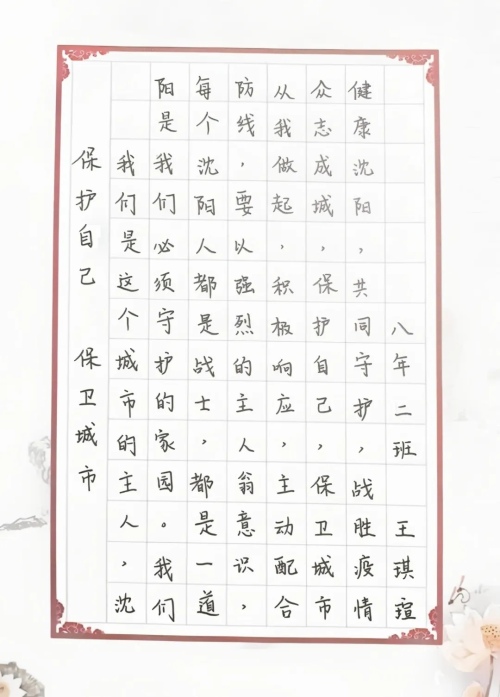 保护自己 保卫城市
我们是这个城市的主人，沈
阳是我们必须守护的家园。我们
每个沈阳人都是战士，都是一道
防线，要以强烈的主人翁意识，
从我做起，积极响应，主动配合
众志成城，保护自己，保卫城市
健康沈阳，共同守护，战胜疫情
八年二班 王琪瑄